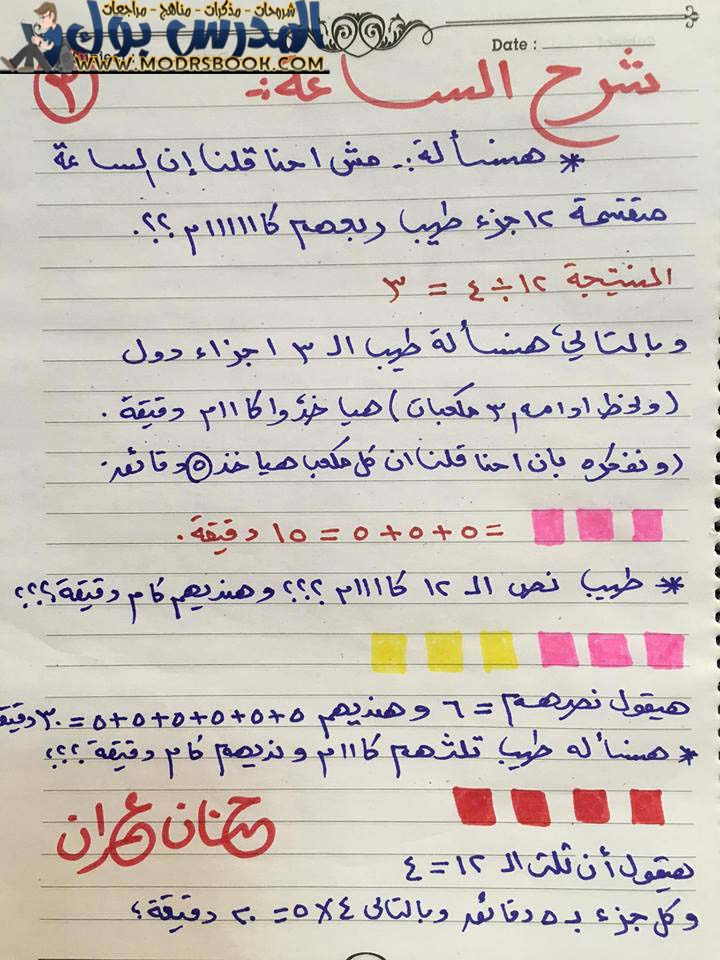 شروحات - مذكرات - مناهج - مراجعات
المدرس بوك
WWW.MODRSBOOK.COM
Date :
شرح الساعة:-
٣
* هنسأله:- مش احنا قلنا إن الساعة
متقسمة ١٢ جزء طيب ربعهم كااااااام ؟؟.
النتيجة ١٢ ÷ ٤ = ٣
وبالتالي، هنسأله طيب الـ ٣ اجزاء دول
(ونحط ادامهم ٣ مكعبات) هياخدوا كااام دقيقة.
(ونفكره بان احنا قلنا ان كل مكعب هياخد ٥ دقائق.
= ٥ + ٥ + ٥ = ١٥ دقيقة.
* طيب نص الـ ١٢ كاااام ؟؟؟ وهنديهم كام دقيقة؟؟؟
هيقول نصهم = ٦ وهنديهم ٥+٥+٥+٥+٥+٥ = ٣٠ دقيقة
* هنسأله طيب تلتهم كااام ونديهم كام دقيقة؟؟؟
حنان عمران
هيقول أن ثلث الـ ١٢ = ٤
وكل جزء بـ ٥ دقائق وبالتالى ٤ × ٥ = ٢٠ دقيقة؟